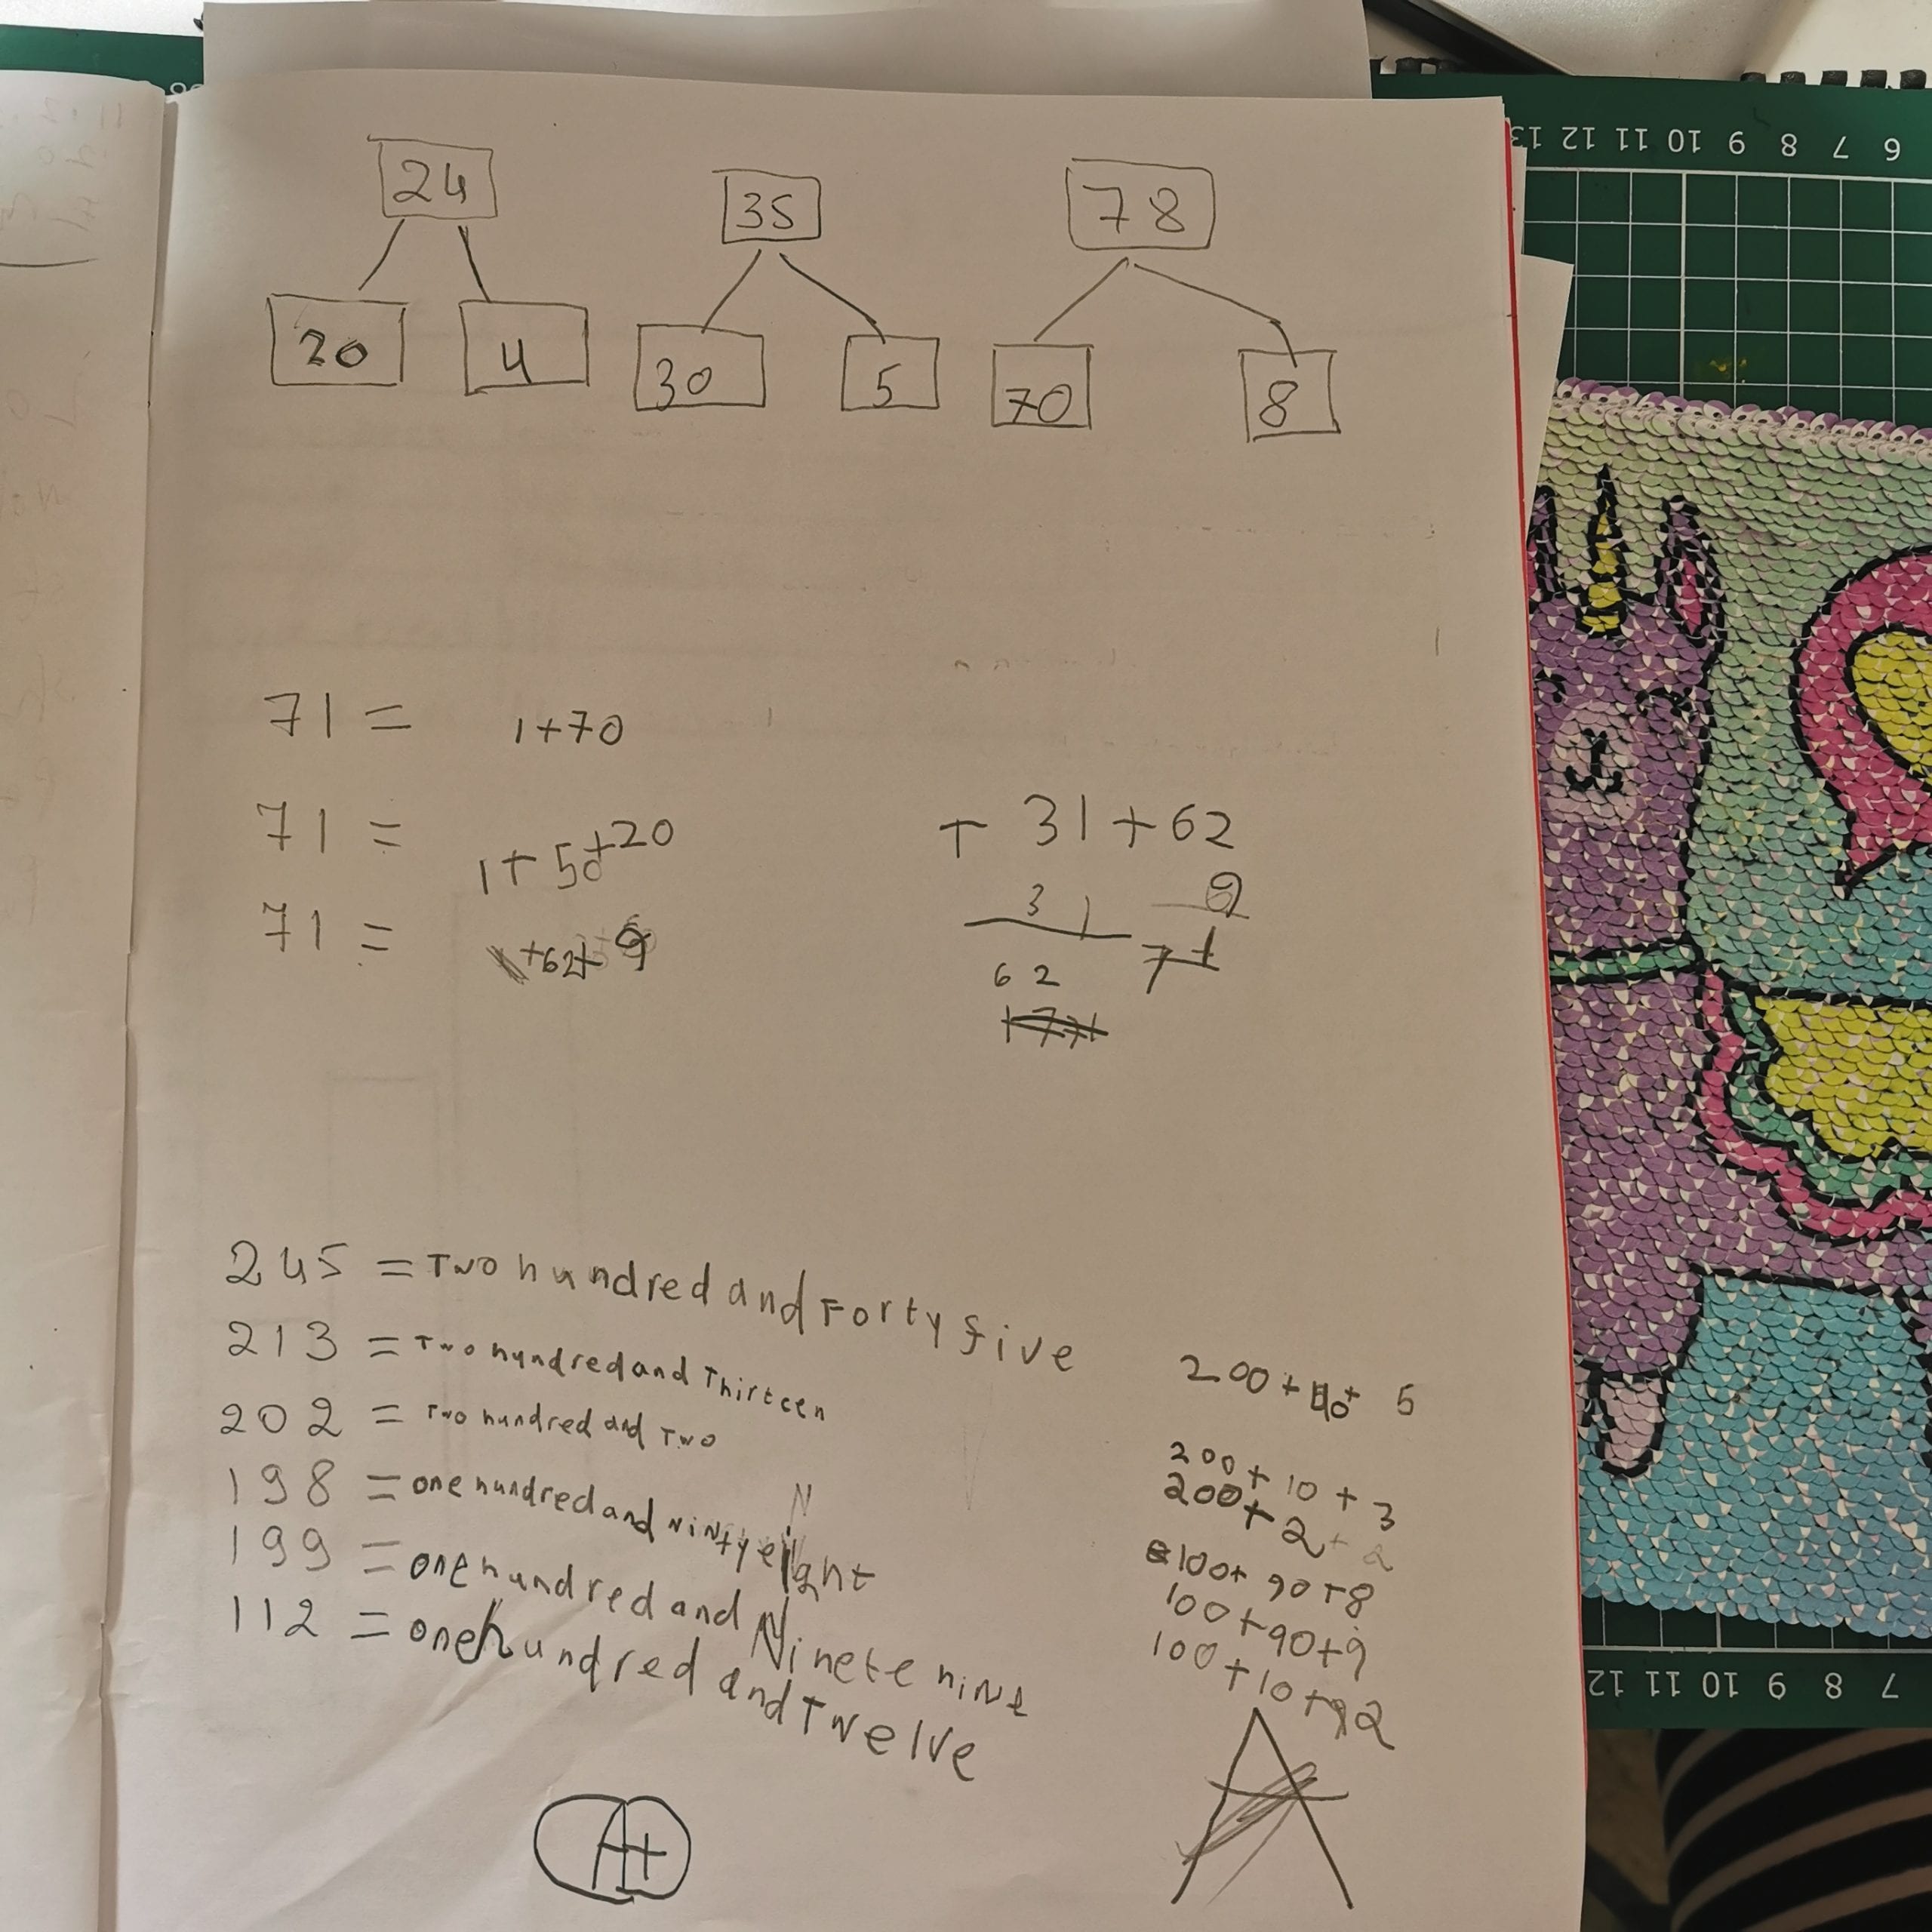 13 12 11 11 10 9 8 7 6
24 35 78
20 4 30 5 70 8
71 = 1+70
71 = 1+50+20
+ 31+62
71 = +62+ 9
3 1 9
62 71
245 = Two hundred and Forty five
200+40+ 5
213 = Two hundred and Thirteen
200+ 10 + 3
202 = Two hundred and Two
200+ 2
198 = one hundred and Ninty eight
100+ 90+8
199 = one hundred and Ninete nine
100+90+9
112 = one hundred and Twelve
100+10+2
12 11 11 10 9 8 7
A+
A